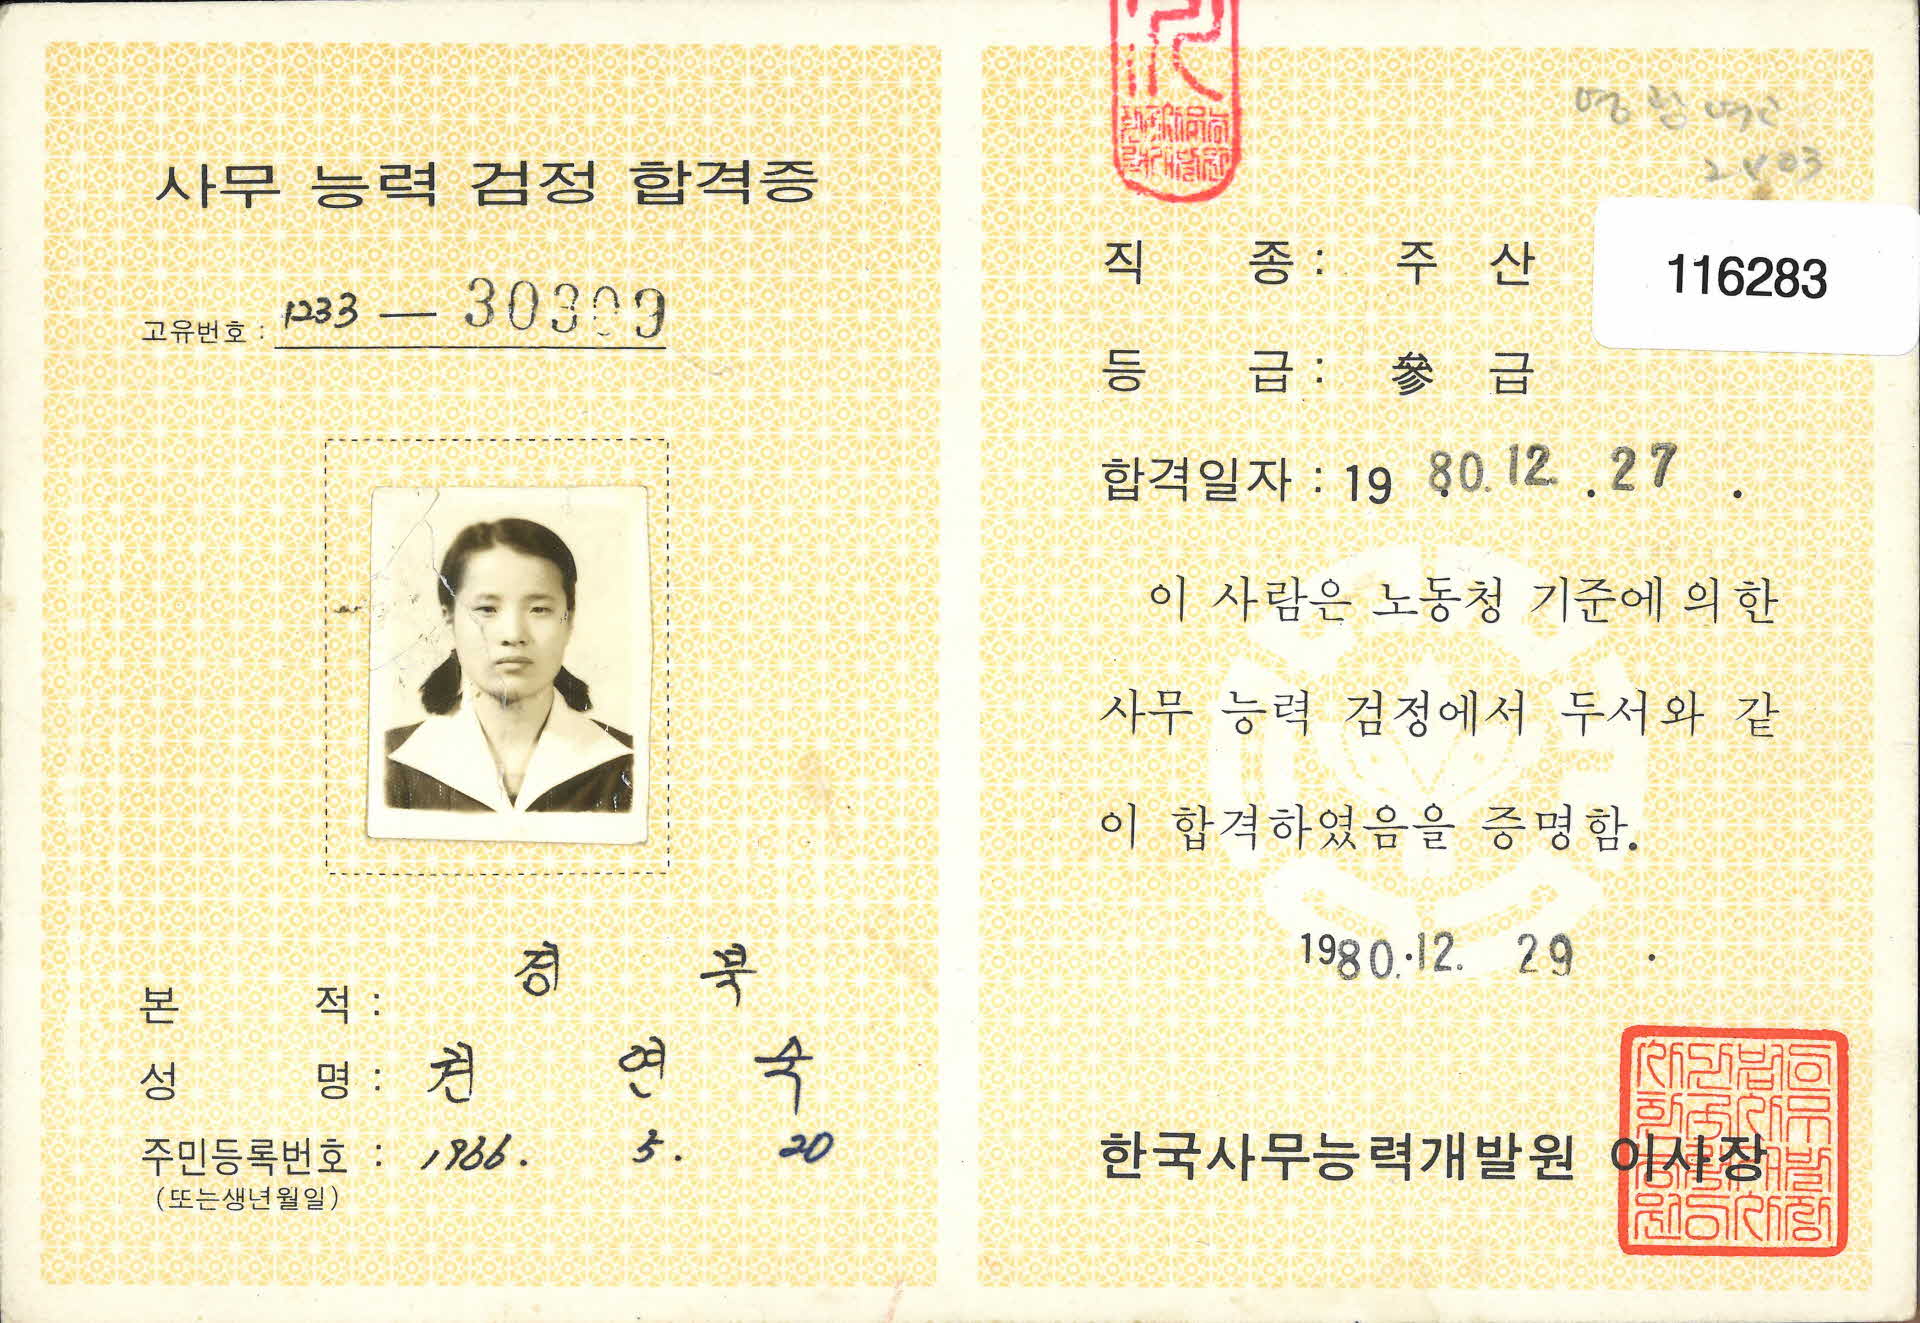 사무 능력 검정 합격증
고유번호 : 1233 — 30309
본 적 : 경 북
성 명 : 권 연 숙
주민등록번호 : 1966. 5. 20
(또는생년월일)
2403
116283
직 종 : 주 산
등 급 : 參 급
합격일자 : 19 80. 12. . 27 .
이 사람은 노동청 기준에 의한
사무 능력 검정에서 두서와 같
이 합격하였음을 증명함.
1980. 12. 29 .
한국사무능력개발원 이사장